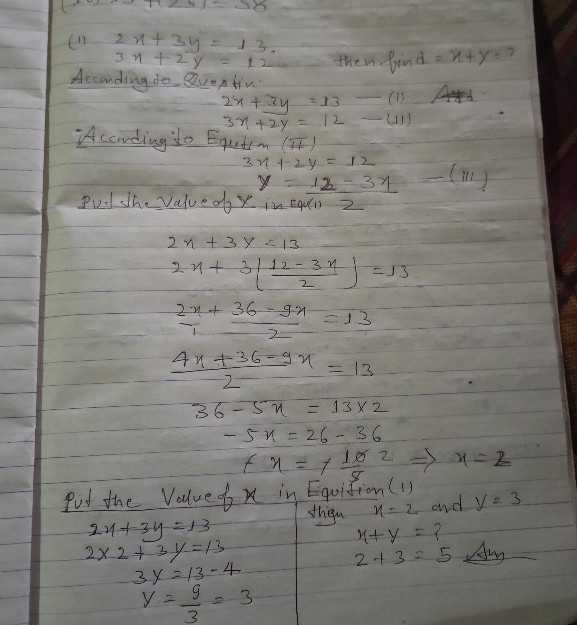 (1) 2x + 3y = 13.
3x + 2y = 12 then find = x+y = ?
According to Question.
2x + 3y = 13 — (1)
3x + 2y = 12 — (11)
According to Equation (II)
3x + 2y = 12
y = 12 - 3x / 2 — (III)
Put the value of y in Eqn(1)
2x + 3y = 13
2x + 3 ( 12 - 3x / 2 ) = 13
2x / 1 + 36 - 9x / 2 = 13
4x + 36 - 9x / 2 = 13
36 - 5x = 13 x 2
- 5x = 26 - 36
x = 10 2 / 5 ⇒ x = 2
Put the Value of x in Equition (1)
2x + 3y = 13
2 x 2 + 3y = 13
3y = 13 - 4
y = 9 / 3 = 3
then x = 2 and y = 3
x + y = ?
2 + 3 = 5 Ans